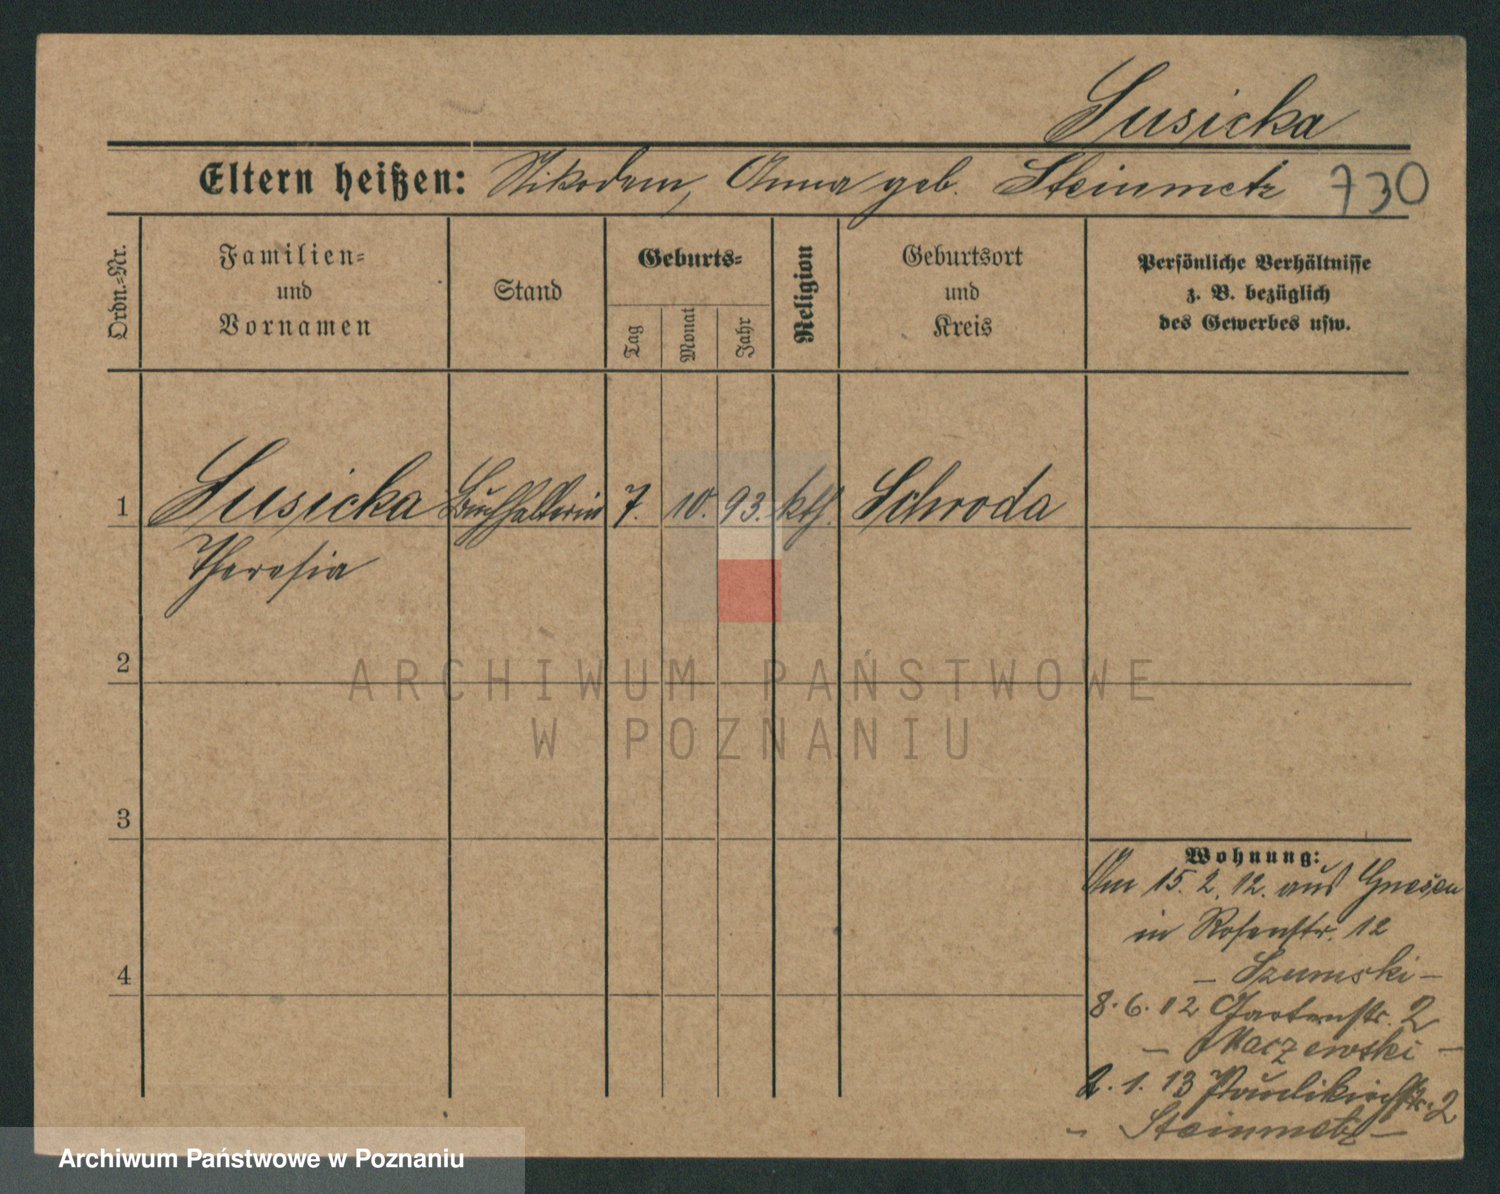 Susicka
Eltern heißen: Nikodem, Anna geb. Steinmetz 730
Ordn.-Nr.
Familien-
und
Vornamen
Stand
Geburts-
Tag
Monat
Jahr
Religion
Geburtsort
und
Kreis
Persönliche Verhältnisse
z. B. bezüglich
des Gewerbes usw.
1 Susicka Buchhalterin 7. 10. 93. kth. Schroda
Theresia
2
3
4
Wohnung:
Am 15. 2. 12. aus Gnesen
in Rosenstr. 12
- Szumski -
8. 6. 12 Gartenstr. 2
- Maczewski -
2. 1. 13 Paulikirchstr. 2
- Steinmetz -
ARCHIWUM PAŃSTWOWE
W POZNANIU
Archiwum Państwowe w Poznaniu